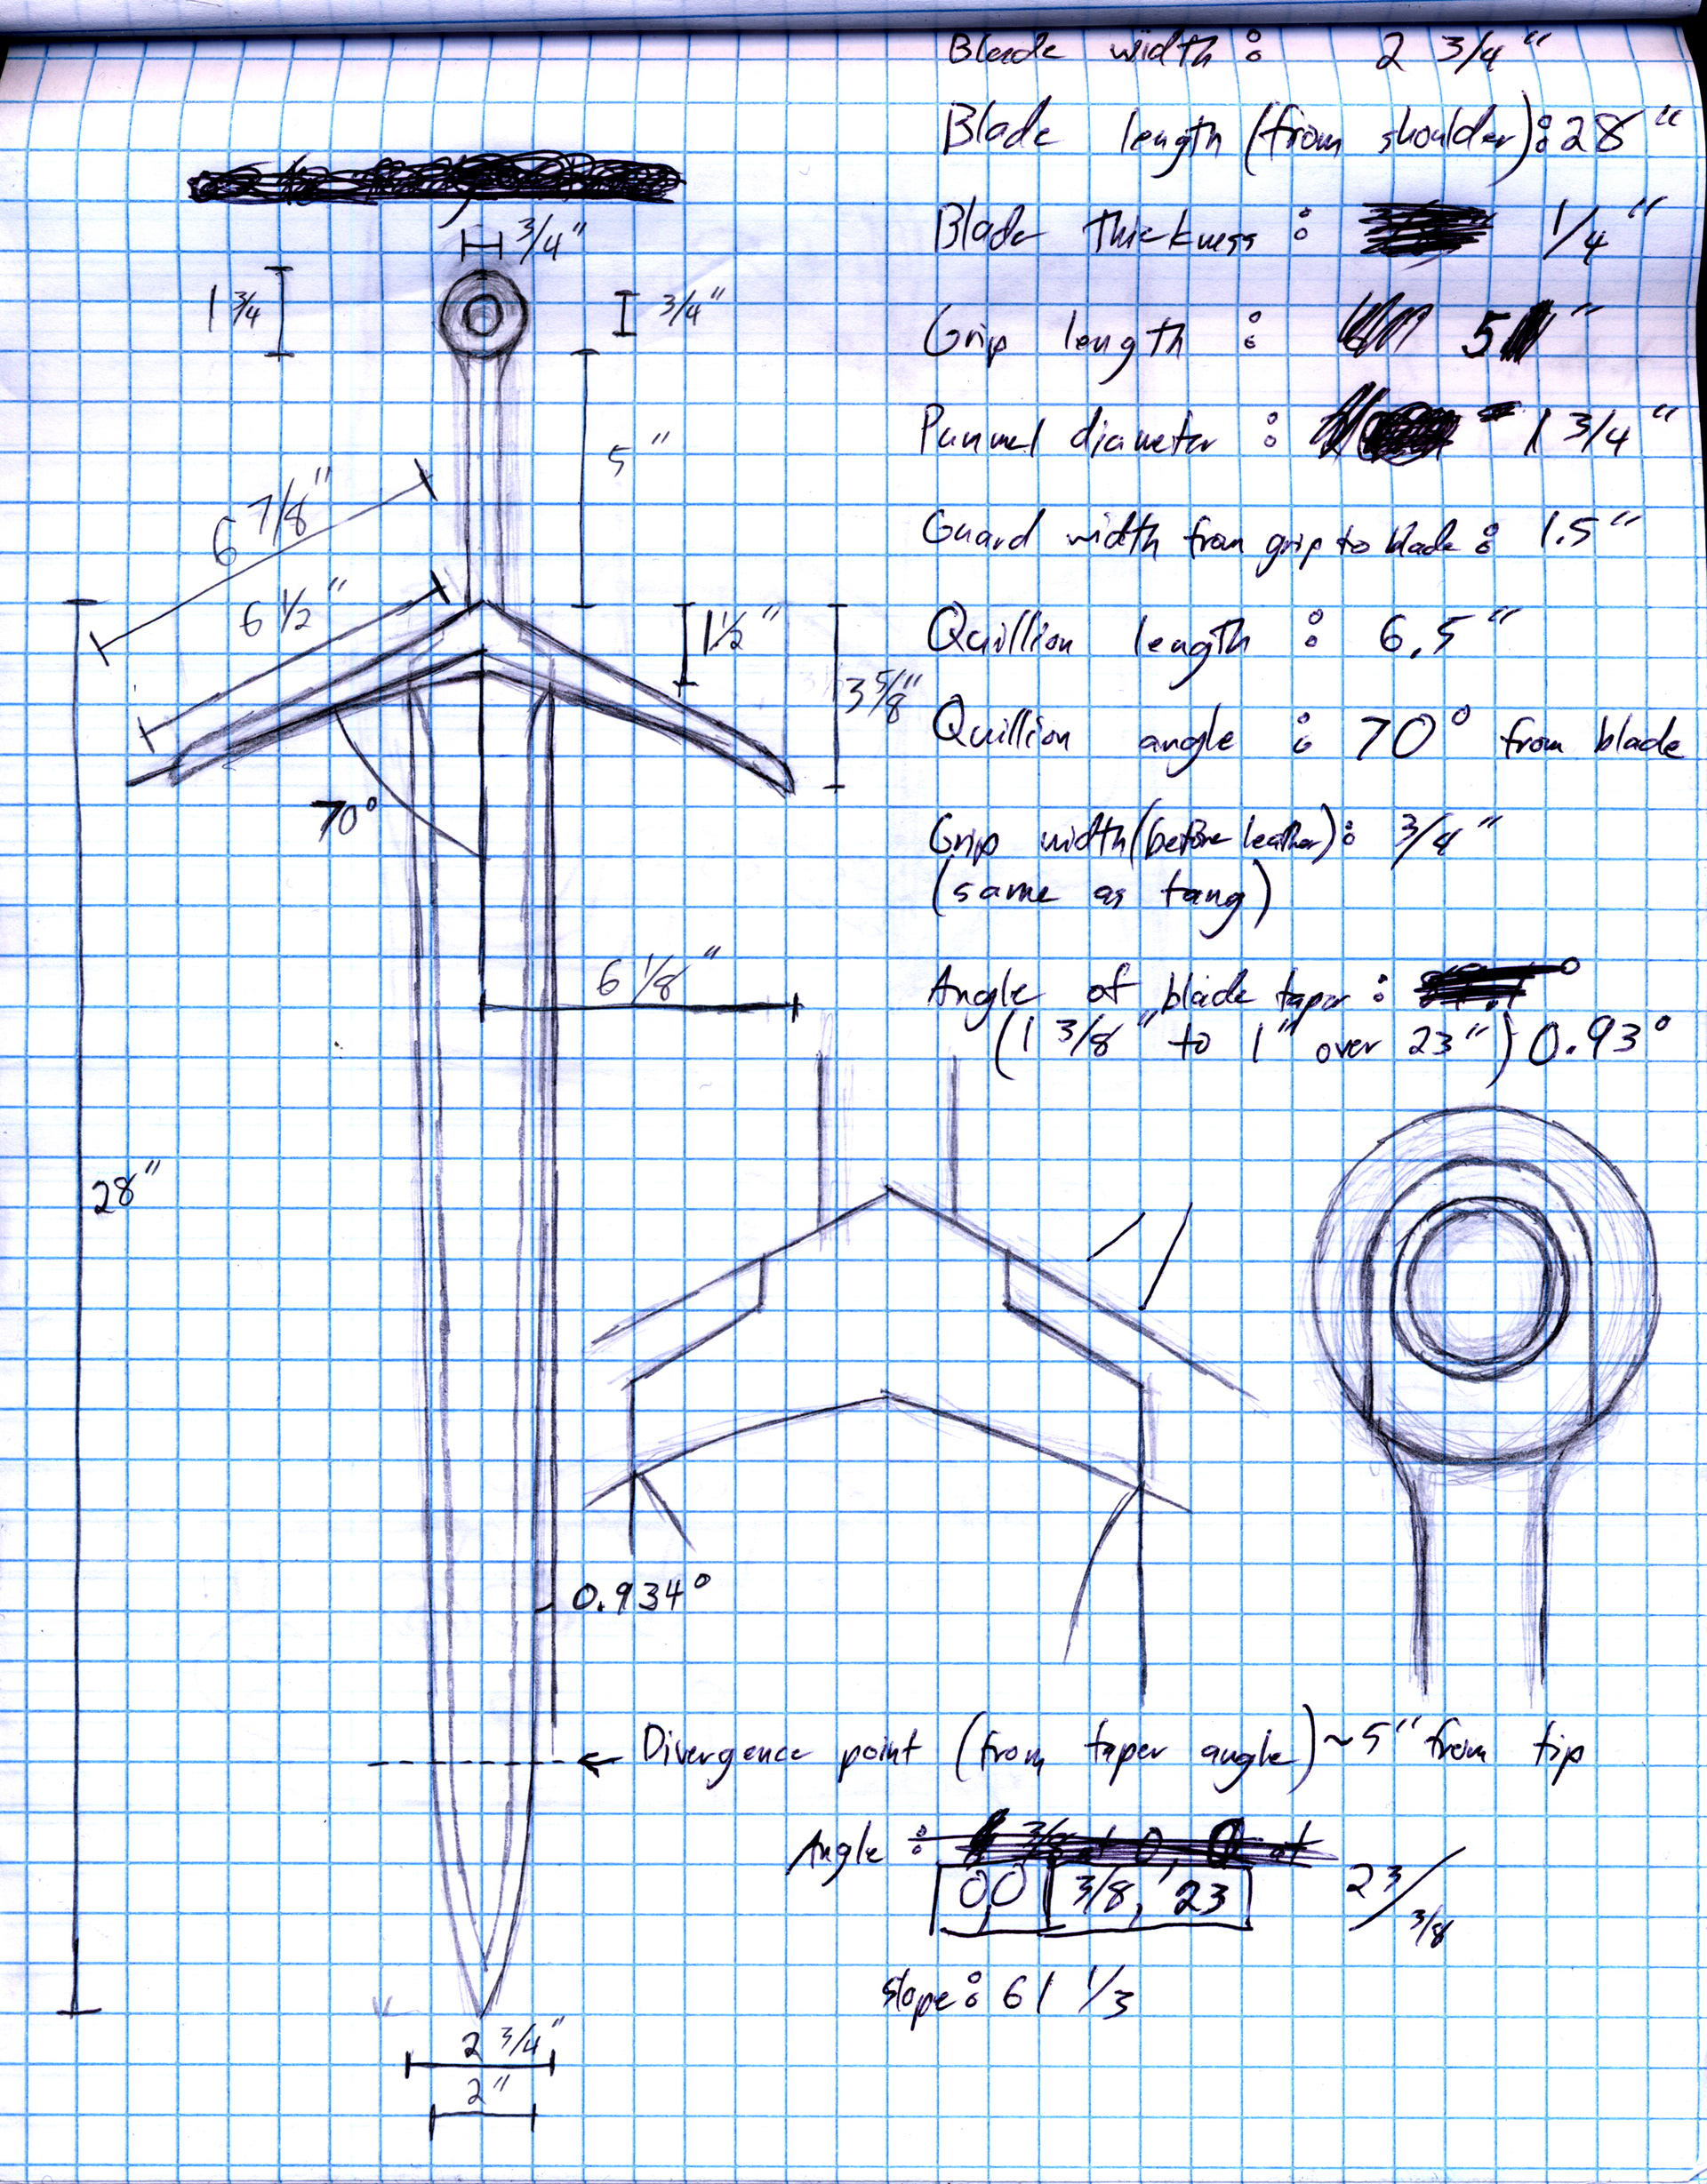 Blade width : 2 3/4"
Blade length (from shoulder): 28"
Blade thickness : 1/4"
Grip length : 5"
Pummel diameter : 1 3/4"
Guard width from grip to blade : 1.5"
Quillion length : 6.5"
Quillion angle : 70° from blade
Grip width (before leather): 3/4"
(same as tang)
Angle of blade taper :
(1 3/8" to 1" over 23") 0.93°
3/4"
1 3/4
3/4"
5"
6 7/8"
6 1/2"
1 1/2"
3 5/8"
70°
6 1/8"
28"
0.934°
← Divergence point (from taper angle) ~5" from tip
Angle :
0,0 3/8, 23 23/3/8
slope : 61 1/3
2 3/4"
2"